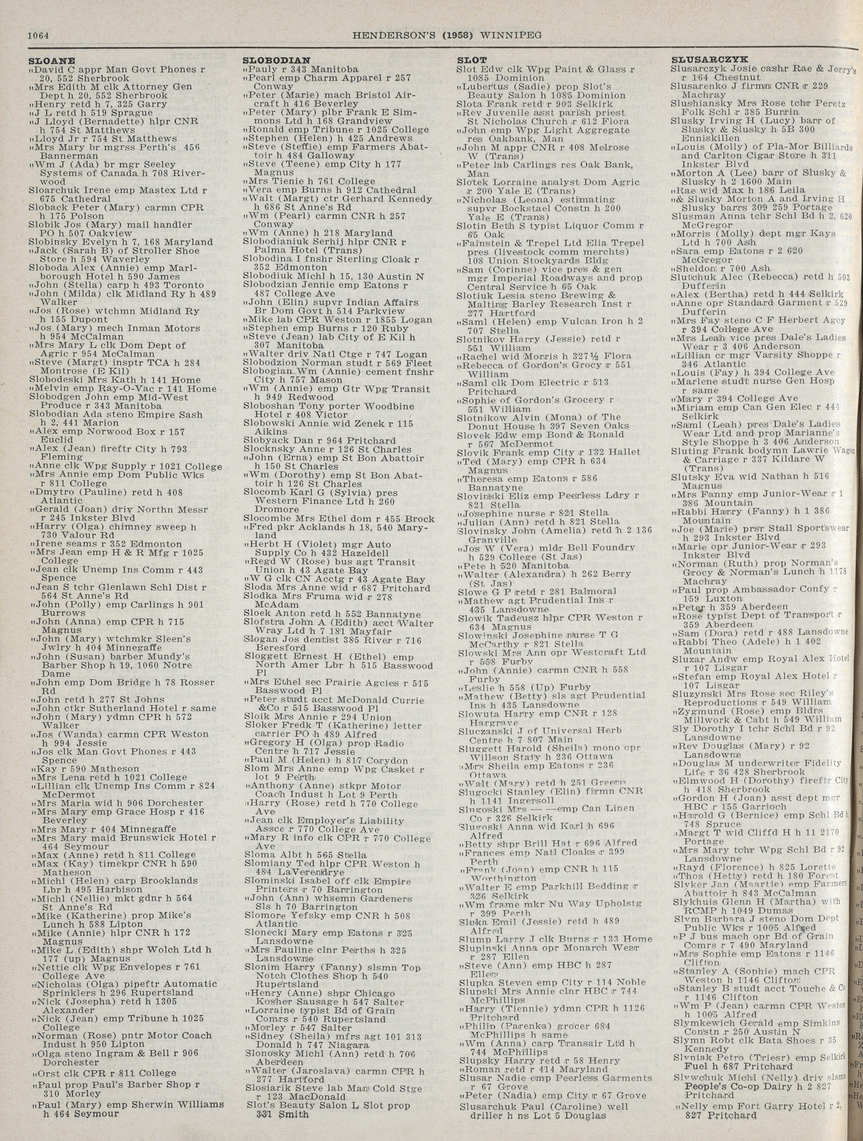 1064
HENDERSON'S (1958) WINNIPEG
SLOANE
„David C appr Man Govt Phones r
20, 552 Sherbrook
„Mrs Edith M clk Attorney Gen
Dept h 20, 552 Sherbrook
„Henry retd h 7, 325 Garry
„J L retd h 519 Sprague
„J Lloyd (Bernadette) hlpr CNR
h 754 St Matthews
„Lloyd Jr r 754 St Matthews
„Mrs Mary br mgrss Perth's 456
Bannerman
„Wm J (Ada) br mgr Seeley
Systems of Canada h 708 River-
wood
Sloarchuk Irene emp Mastex Ltd r
675 Cathedral
Sloback Peter (Mary) carmn CPR
h 175 Polson
Slobik Jos (Mary) mail handler
PO h 507 Oakview
Slobinsky Evelyn h 7, 168 Maryland
„Jack (Sarah B) of Stroller Shoe
Store h 594 Waverley
Sloboda Alex (Annie) emp Marl-
borough Hotel h 590 James
„John (Stella) carp h 493 Toronto
„John (Milda) clk Midland Ry h 489
Walker
„Jos (Rose) wtchmn Midland Ry
h 155 Dupont
„Jos (Mary) mech Inman Motors
h 954 McCalman
„Mrs Mary L clk Dom Dept of
Agric r 954 McCalman
„Steve (Margt) insptr TCA h 284
Montrose (E Kil)
Slobodeski Mrs Kath h 141 Home
„Melvin emp Ray-O-Vac r 141 Home
Slobodgen John emp Mid-West
Produce r 343 Manitoba
Slobodian Ada steno Empire Sash
h 2, 441 Marion
„Alex emp Norwood Box r 157
Euclid
„Alex (Jean) fireftr City h 793
Fleming
„Anne clk Wpg Supply r 1021 College
„Mrs Annie emp Dom Public Wks
r 811 College
„Dmytro (Pauline) retd h 408
Atlantic
„Gerald (Joan) driv Northn Messr
r 245 Inkster Blvd
„Harry (Olga) chimney sweep h
730 Valour Rd
„Irene seams r 352 Edmonton
„Mrs Jean emp H & R Mfg r 1025
College
„Jean clk Unemp Ins Comm r 443
Spence
„Jean S tchr Glenlawn Schl Dist r
564 St Anne's Rd
„John (Polly) emp Carlings h 901
Burrows
„John (Anna) emp CPR h 715
Magnus
„John (Mary) wtchmkr Sleen's
Jwlry h 404 Minnegaffe
„John (Susan) barber Mundy's
Barber Shop h 19, 1060 Notre
Dame
„John emp Dom Bridge h 78 Rosser
Rd
„John retd h 277 St Johns
„John ctkr Sutherland Hotel r same
„John (Mary) ydmn CPR h 572
Walker
„Jos (Wanda) carmn CPR Weston
h 994 Jessie
„Jos clk Man Govt Phones r 443
Spence
„Kay r 590 Matheson
„Mrs Lena retd h 1021 College
„Lillian clk Unemp Ins Comm r 824
McDermot
„Mrs Maria wid h 906 Dorchester
„Mrs Mary emp Grace Hosp r 416
Beverley
„Mrs Mary r 404 Minnegaffe
„Mrs Mary maid Brunswick Hotel r
464 Seymour
„Max (Anne) retd h 811 College
„Max (Kay) timekpr CNR h 590
Matheson
„Michl (Helen) carp Brooklands
Lbr h 495 Harbison
„Michl (Nellie) mkt gdnr h 564
St Anne's Rd
„Mike (Katherine) prop Mike's
Lunch h 588 Lipton
„Mike (Annie) hlpr CNR h 172
Magnus
„Mike L (Edith) shpr Wolch Ltd h
177 (up) Magnus
„Nettie clk Wpg Envelopes r 761
College Ave
„Nicholas (Olga) pipeftr Automatic
Sprinklers h 296 Rupertsland
„Nick (Josepha) retd h 1305
Alexander
„Nick (Jean) emp Tribune h 1025
College
„Norman (Rose) pntr Motor Coach
Indust h 950 Lipton
„Olga steno Ingram & Bell r 906
Dorchester
„Orst clk CPR r 811 College
„Paul prop Paul's Barber Shop r
310 Morley
„Paul (Mary) emp Sherwin Williams
h 464 Seymour
SLOBODIAN
„Pauly r 343 Manitoba
„Pearl emp Charm Apparel r 257
Conway
„Peter (Marie) mach Bristol Air-
craft h 416 Beverley
„Peter (Mary) plbr Frank E Sim-
mons Ltd h 168 Grandview
„Ronald emp Tribune r 1025 College
„Stephen (Helen) h 425 Andrews
„Steve (Steffie) emp Farmers Abat-
toir h 484 Galloway
„Steve (Teene) emp City h 177
Magnus
„Mrs Tienie h 761 College
„Vera emp Burns h 912 Cathedral
„Walt (Margt) ctr Gerhard Kennedy
h 686 St Anne's Rd
„Wm (Pearl) carmn CNR h 257
Conway
„Wm (Anne) h 218 Maryland
Slobodianiuk Serhij hlpr CNR r
Palma Hotel (Trans)
Slobodina I fnshr Sterling Cloak r
352 Edmonton
Slobodiuk Michl h 15, 130 Austin N
Slobodzian Jennie emp Eatons r
487 College Ave
„John (Elin) supvr Indian Affairs
Br Dom Govt h 514 Parkview
„Mike lab CPR Weston r 1855 Logan
„Stephen emp Burns r 120 Ruby
„Steve (Jean) lab City of E Kil h
307 Manitoba
„Walter driv Natl Ctge r 747 Logan
Slobodzion Norman studt r 569 Fleet
Slobogian Wm (Annie) cement fnshr
City h 757 Mason
„Wm (Annie) emp Gtr Wpg Transit
h 949 Redwood
Sloboshan Tony porter Woodbine
Hotel r 408 Victor
Slobowski Annie wid Zenek r 115
Aikins
Slobyack Dan r 964 Pritchard
Slocknsky Anne r 126 St Charles
„John (Erna) emp St Bon Abattoir
h 150 St Charles
„Wm (Dorothy) emp St Bon Abat-
toir h 126 St Charles
Slocomb Karl G (Sylvia) pres
Western Finance Ltd h 260
Dromore
Slocombe Mrs Ethel dom r 455 Brock
„Fred pkr Acklands h 18, 540 Mary-
land
„Herbt H (Violet) mgr Auto
Supply Co h 432 Hazeldell
„Regd W (Rose) bus agt Transit
Union h 43 Agate Bay
„W G clk CN Acctg r 43 Agate Bay
Sloda Mrs Anne wid r 687 Pritchard
Slodka Mrs Fruma wid r 278
McAdam
Sloek Anton retd h 552 Bannatyne
Slofstra John A (Edith) acct Walter
Wray Ltd h 7 181 Mayfair
Slogan Jos dentist 385 River r 716
Beresford
Sloggett Ernest H (Ethel) emp
North Amer Lbr h 515 Basswood
Pl
„Mrs Ethel sec Prairie Agcies r 515
Basswood Pl
„Peter studt acct McDonald Currie
&Co r 515 Basswood Pl
Sloik Mrs Annie r 294 Union
Sloker Fredk T (Katherine) letter
carrier PO h 489 Alfred
„Gregory H (Olga) prop Radio
Centre h 717 Jessie
„Paul M (Helen) h 817 Corydon
Slom Mrs Anne emp Wpg Casket r
lot 9 Perth
„Anthony (Anne) stkpr Motor
Coach Indust h Lot 9 Perth
„Harry (Rose) retd h 770 College
Ave
„Jean clk Employer's Liability
Assce r 770 College Ave
„Mary R info clk CPR r 770 College
Ave
Sloma Albt h 565 Stella
Slomiany Ted hlpr CPR Weston h
484 LaVerendrye
Slominski Isabel off clk Empire
Printers r 70 Barrington
„John (Ann) whsemn Gardeners
Sls h 70 Barrington
Slomore Yefsky emp CNR h 508
Atlantic
Slonecki Mary emp Eatons r 325
Lansdowne
„Mrs Pauline clnr Perths h 325
Lansdowne
Slonim Harry (Fanny) slsmn Top
Notch Clothes Shop h 540
Rupertsland
„Henry (Anne) shpr Chicago
Kosher Sausage h 547 Salter
„Lorraine typist Bd of Grain
Comrs r 540 Rupertsland
„Morley r 547 Salter
„Sidney (Sheila) mfrs agt 101 313
Donald h 747 Niagara
Slonosky Michl (Ann) retd h 706
Aberdeen
„Walter (Jaroslava) carmn CPR h
277 Hartford
Slosiarik Steve lab Man Cold Stge
r 123 MacDonald
Slot's Beauty Salon L Slot prop
331 Smith
SLOT
Slot Edw clk Wpg Paint & Glass r
1085 Dominion
„Lubertus (Sadie) prop Slot's
Beauty Salon h 1085 Dominion
Slota Frank retd r 903 Selkirk
„Rev Juvenile asst parish priest
St Nicholas Church r 612 Flora
„John emp Wpg Light Aggregate
res Oakbank, Man
„John M appr CNR r 408 Melrose
W (Trans)
„Peter lab Carlings res Oak Bank,
Man
Slotek Lorraine analyst Dom Agric
r 200 Yale E (Trans)
„Nicholas (Leona) estimating
supvr Bockstael Constn h 200
Yale E (Trans)
Slotin Beth S typist Liquor Comm r
65 Oak
„Fainstein & Trepel Ltd Elia Trepel
pres (livestock comm merchts)
108 Union Stockyards Bldg
„Sam (Corinne) vice pres & gen
mgr Imperial Roadways and prop
Central Service h 65 Oak
Slotiuk Lesia steno Brewing &
Malting Barley Research Inst r
277 Hartford
„Saml (Helen) emp Vulcan Iron h 2
707 Stella
Slotnikov Harry (Jessie) retd r
551 William
„Rachel wid Morris h 327½ Flora
„Rebecca of Gordon's Grocy r 551
William
„Saml clk Dom Electric r 513
Pritchard
„Sophie of Gordon's Grocery r
551 William
Slotnikow Alvin (Mona) of The
Donut House h 397 Seven Oaks
Slovek Edw emp Bond & Ronald
r 567 McDermot
Slovik Frank emp City r 132 Hallet
„Ted (Mary) emp CPR h 634
Magnus
„Theresa emp Eatons r 586
Bannatyne
Slovinski Eliz emp Peerless Ldry r
821 Stella
„Josephine nurse r 821 Stella
„Julian (Ann) retd h 821 Stella
Slovinsky John (Amelia) retd h 2 136
Granville
„Jos W (Vera) mldr Bell Foundry
h 529 College (St Jas)
„Pete h 520 Manitoba
„Walter (Alexandra) h 262 Berry
(St Jas)
Slowe G P retd r 281 Balmoral
„Mathew agt Prudential Ins r
435 Lansdowne
Slowik Tadeusz hlpr CPR Weston r
634 Magnus
Slowinski Josephine nurse T G
McCarthy r 821 Stella
Slowski Mrs Ann opr Westcraft Ltd
r 558 Furby
„John (Annie) carmn CNR h 558
Furby
„Leslie h 558 (Up) Furby
„Mathew (Betty) sls agt Prudential
Ins h 435 Lansdowne
Slowuta Harry emp CNR r 128
Hargrave
Sluczanski J of Universal Herb
Centre h 7 807 Main
Sluggett Harold (Sheila) mono opr
Willson Staty h 236 Ottawa
„Mrs Sheila emp Eatons r 236
Ottawa
„Walt (Mary) retd h 251 Greene
Slugocki Stanley (Elin) firmn CNR
h 1141 Ingersoll
Slugoski Mrs — —emp Can Linen
Co r 326 Selkirk
Slugoski Anna wid Karl h 696
Alfred
„Betty shpr Brill Hat r 696 Alfred
„Frances emp Natl Cloaks r 399
Perth
„Frank (Joan) emp CNR h 115
Worthington
„Walter E emp Parkhill Bedding r
326 Selkirk
„Wm frame mkr Nu Way Upholstg
r 399 Perth
Sluka Emil (Jessie) retd h 489
Alfred
Slump Larry J clk Burns r 133 Home
Slupinski Anna opr Monarch Wear
r 287 Ellen
„Steve (Ann) emp HBC h 287
Ellen
Slupka Steven emp City r 114 Noble
Slupski Mrs Annie clnr HBC r 744
McPhillips
„Harry (Tiennie) ydmn CPR h 1126
Pritchard
„Philip (Parenka) grocer 684
McPhillips h same
„Wm (Anna) carp Transair Ltd h
744 McPhillips
Slupsky Harry retd r 58 Henry
„Roman retd r 414 Maryland
Slusar Nadie emp Peerless Garments
r 67 Grove
„Peter (Nadia) emp City r 67 Grove
Slusarchuk Paul (Caroline) well
driller h ns Lot 5 Douglas
SLUSARCZYK
Slusarczyk Josie cashr Rae & Jerry's
r 164 Chestnut
Slusarenko J firmn CNR r 229
Machray
Slushiansky Mrs Rose tchr Peretz
Folk Schl r 385 Burrin
Slusky Irving H (Lucy) barr of
Slusky & Slusky h 5B 300
Enniskillen
„Louis (Molly) of Pla-Mor Billiards
and Carlton Cigar Store h 311
Inkster Blvd
„Morton A (Lee) barr of Slusky &
Slusky h 2 1600 Main
„Rae wid Max h 186 Leila
„& Slusky Morton A and Irving H
Slusky barrs 309 259 Portage
Slusman Anna tchr Schl Bd h 2, 620
McGregor
„Morris (Molly) dept mgr Kays
Ltd h 700 Ash
„Sara emp Eatons r 2 620
McGregor
„Sheldon r 700 Ash
Slutchuk Alec (Rebecca) retd h 503
Dufferin
„Alex (Bertha) retd h 444 Selkirk
„Anne opr Standard Garment r 529
Dufferin
„Mrs Fay steno C F Herbert Agcy
r 394 College Ave
„Mrs Leah vice pres Dale's Ladies
Wear r 3 406 Anderson
„Lillian cr mgr Varsity Shoppe r
346 Atlantic
„Louis (Fay) h 394 College Ave
„Marlene studt nurse Gen Hosp
r same
„Mary r 394 College Ave
„Miriam emp Can Gen Elec r 444
Selkirk
„Saml (Leah) pres Dale's Ladies
Wear Ltd and prop Marianne's
Style Shoppe h 3 406 Anderson
Sluting Frank bodymn Lawrie Wagon
& Carriage r 337 Kildare W
(Trans)
Slutsky Eva wid Nathan h 516
Magnus
„Mrs Fanny emp Junior-Wear r 1
386 Mountain
„Rabbi Harry (Fanny) h 1 386
Mountain
„Joe (Marie) prsr Stall Sportswear
h 293 Inkster Blvd
„Marie opr Junior-Wear r 293
Inkster Blvd
„Norman (Ruth) prop Norman's
Grocy & Norman's Lunch h 1178
Machray
„Paul prop Ambassador Confy r
159 Luxton
„Peter h 359 Aberdeen
„Rose typist Dept of Transport r
359 Aberdeen
„Sam (Dora) retd r 488 Lansdowne
„Rabbi Theo (Adele) h 1 402
Mountain
Sluzar Andw emp Royal Alex Hotel
r 107 Lisgar
„Stefan emp Royal Alex Hotel r
107 Lisgar
Sluzynski Mrs Rose sec Riley's
Reproductions r 549 William
„Zygmund (Rose) emp Bldrs
Millwork & Cabt h 549 William
Sly Dorothy I tchr Schl Bd r 92
Lansdowne
„Rev Douglas (Mary) r 92
Lansdowne
„Douglas M underwriter Fidelity
Life r 36 428 Sherbrook
„Elmwood H (Dorothy) fireftr City
h 418 Sherbrook
„Gordon H (Joan) asst dept mgr
HBC r 155 Garrioch
„Harold G (Bernice) emp Schl Bd h
748 Spruce
„Margt T wid Cliffd H h 11 2170
Portage
„Mrs Mary tchr Wpg Schl Bd r 92
Lansdowne
„Rayd (Florence) h 825 Lorette
„Thos (Hetty) retd h 180 Forest
Slyker Jan (Maartie) emp Farmers
Abattoir h 843 McCalman
Slykhuis Glenn H (Martha) with
RCMP h 1049 Dumas
Slym Barbara J steno Dom Dept
Public Wks r 1005 Alfred
„P J bus mach opr Bd of Grain
Comrs r 7 490 Maryland
„Mrs Sophie emp Eatons r 1146
Clifton
„Stanley A (Sophie) mach CPR
Weston h 1146 Clifton
„Stanley B studt acct Touche & Co
r 1146 Clifton
„Wm P (Jean) carmn CPR Weston
h 1005 Alfred
Slymkewich Gerald emp Simkins
Constn r 250 Austin N
Slymn Robt clk Bata Shoes r 35
Kennedy
Slyniak Petro (Triesr) emp Selkirk
Fuel h 687 Pritchard
Slywchuk Michl (Nelly) driv slsmn
People's Co-op Dairy h 2 827
Pritchard
„Nelly emp Fort Garry Hotel r 2,
827 Pritchard